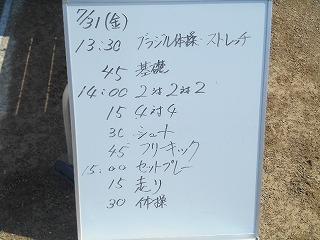 7/31(金)
13:30 ブラジル体操・ストレッチ
45 基礎
14:00 2対2対2
15 4対4
30 シュート
45 フリーキック
15:00 セットプレー
15 走り
30 体操